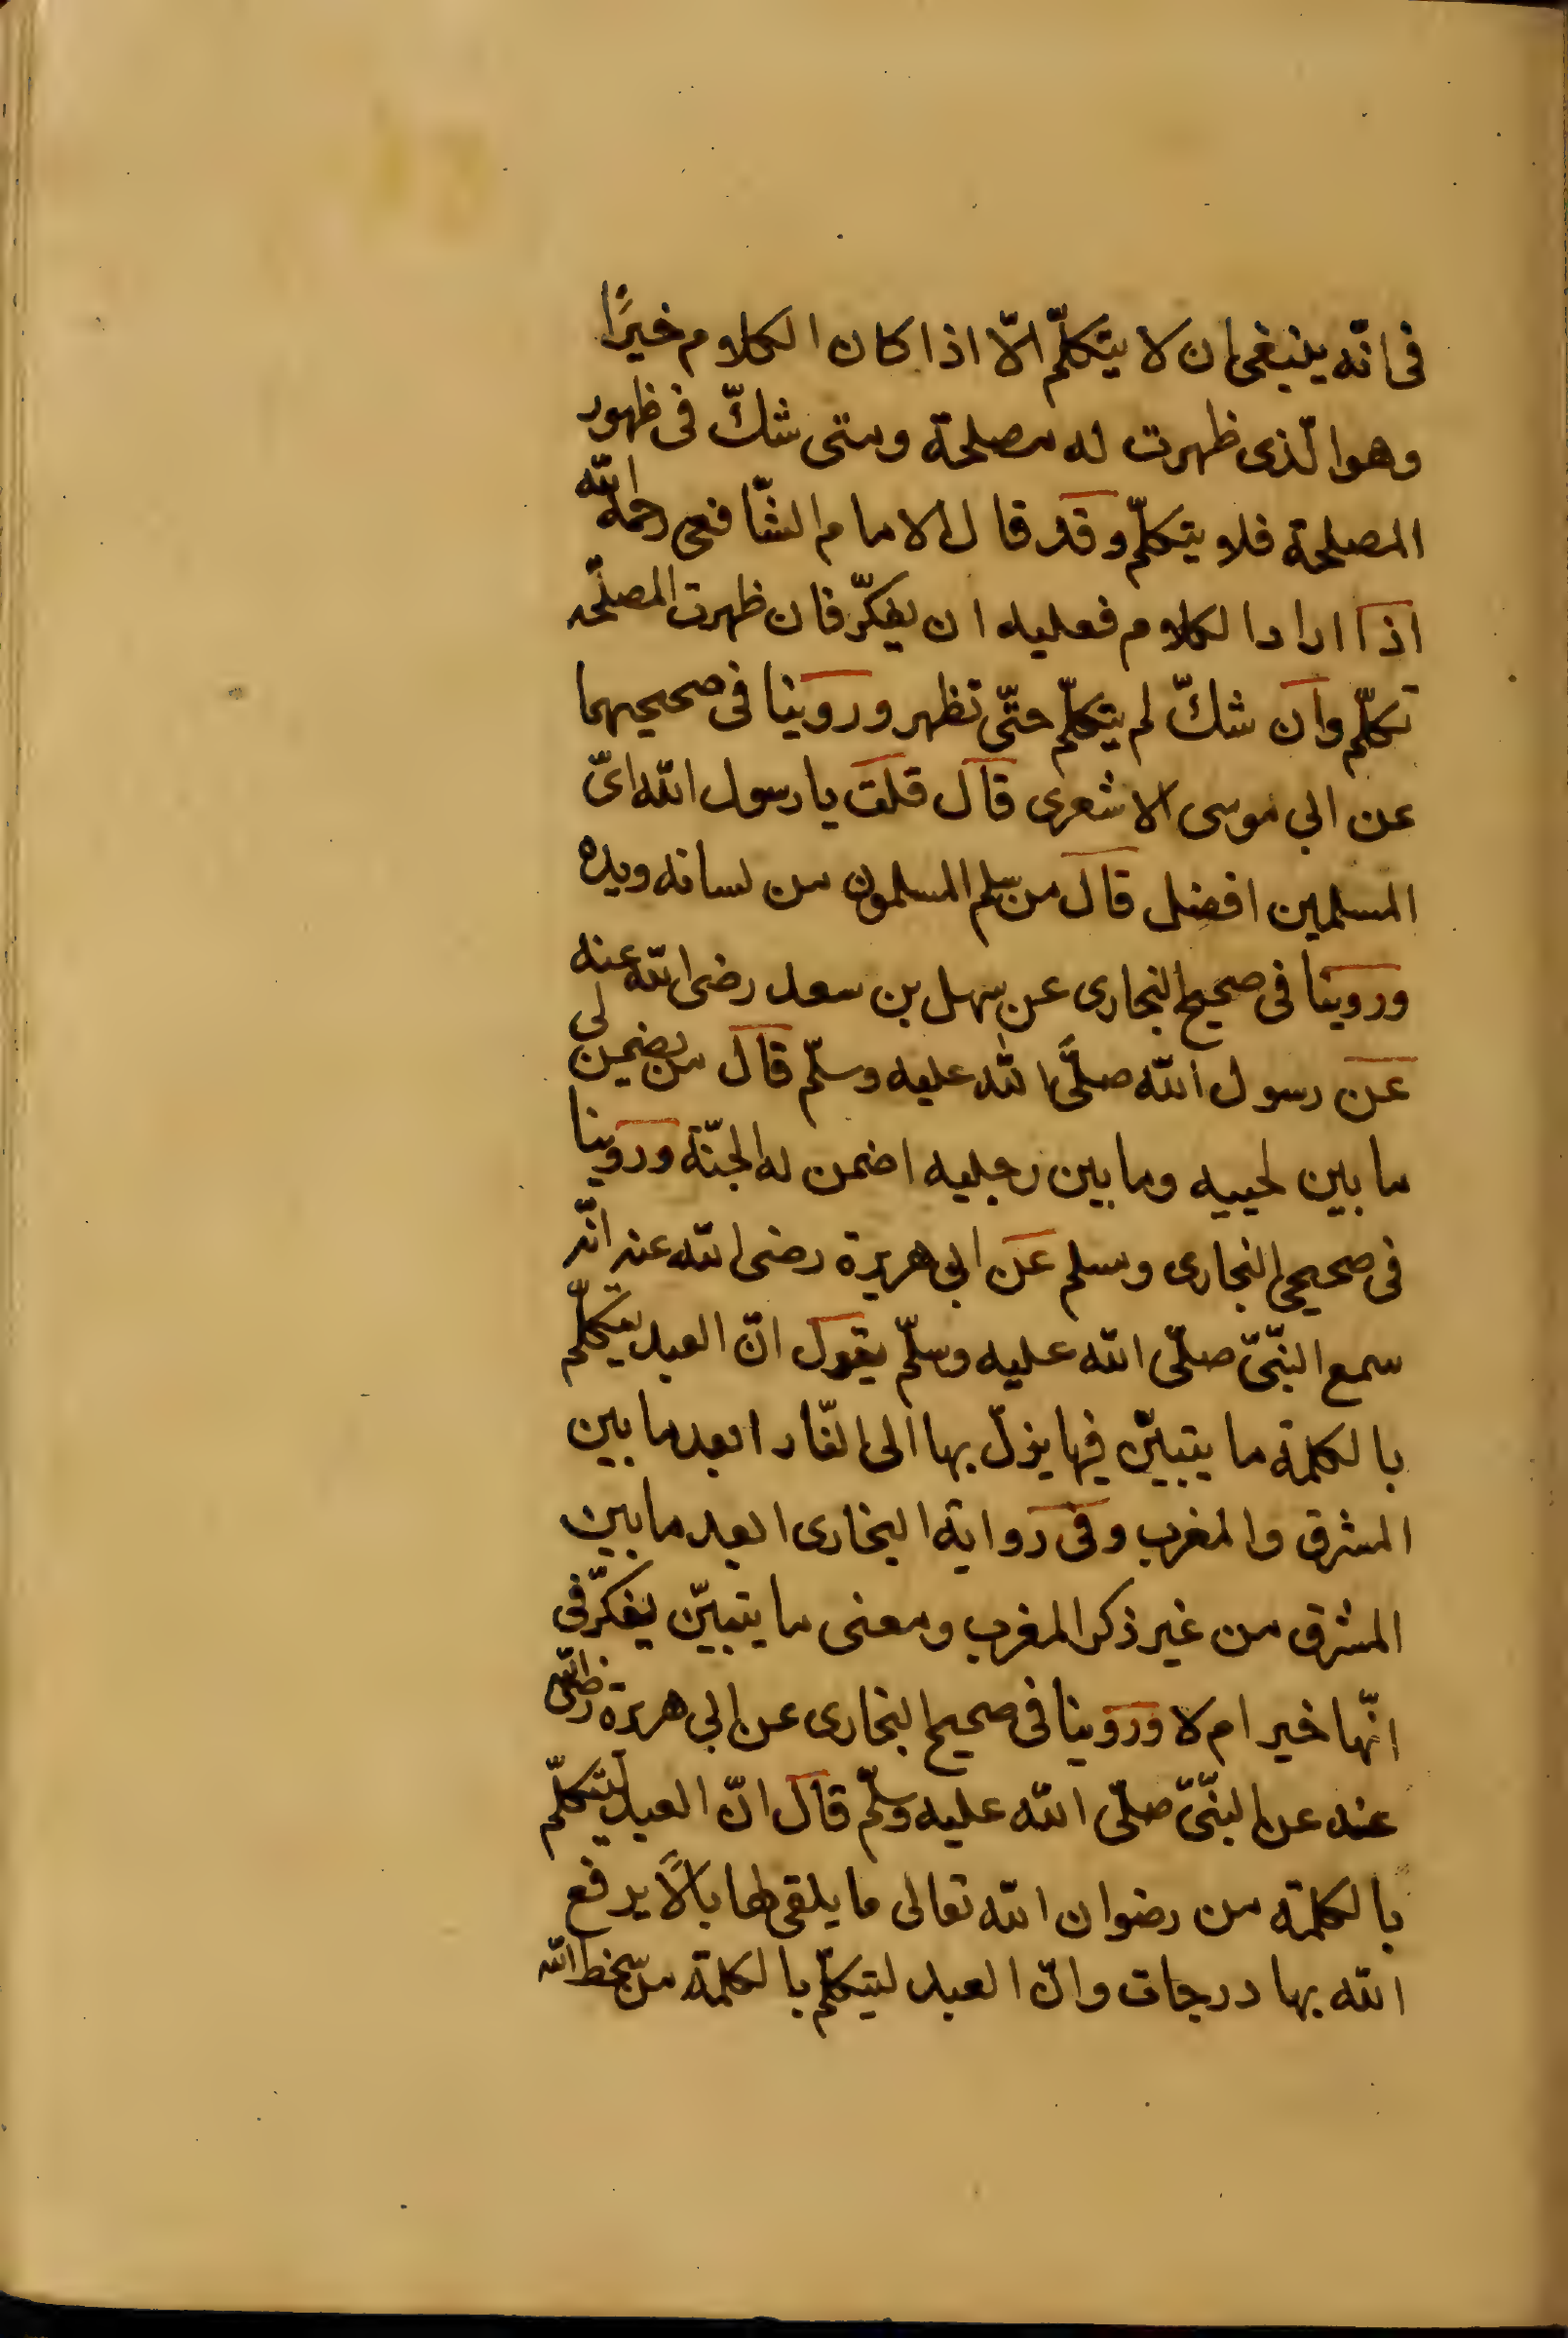 فى انّه ينبغى ان لا يتكلّم الّا اذا كان الكلام خيرًا
وهو الّذى ظهرت له مصلحة ومتى شكّ فى ظهور
المصلحة فلا يتكلّم وقد قال الامام الشّافعى رحمه الله
اذا اراد الكلام فعليه ان يفكّر فان ظهرت المصلحه
تكلّم وان شكّ لم يتكلّم حتّى تظهر وروينا فى صحيحيهما
عن ابي موسى الاشعرى قال قلت يا رسول الله اىّ
المسلمين افضل قال من سلم المسلمون من لسانه ويده
وروينا فى صحيح البخارى عن سهل بن سعد رضى الله عنه
عن رسول الله صلَّى الله عليه وسلّم قال من يضمن لى
ما بين لحييه وما بين رجليه اضمن له الجنّة وروينا
فى صحيحى البخارى ومسلم عن ابى هريرة رضى الله عنه انّه
سمع النبّىّ صلّى الله عليه وسلّم يقول انّ العبد ليتكلّم
بالكلمة ما يتبيّن فيها يزلّ بها الى النّار ابعد ما بين
المشرق والمغرب وفى رواية البخارى ابعد ما بين
المشرق من غير ذكر المغرب ومعنى ما يتبيّن يفكّر فى
انّها خير ام لا وروينا فى صحيح البخارى عن ابى هريرة رضى الله
عنه عن النبّىّ صلّى الله عليه وسلّم قال انّ العبد ليتكلّم
بالكلمة من رضوان الله تعالى ما يلقى لها بالًا يرفع
الله بها درجات وانّ العبد ليتكلّم بالكلمة من سخط الله